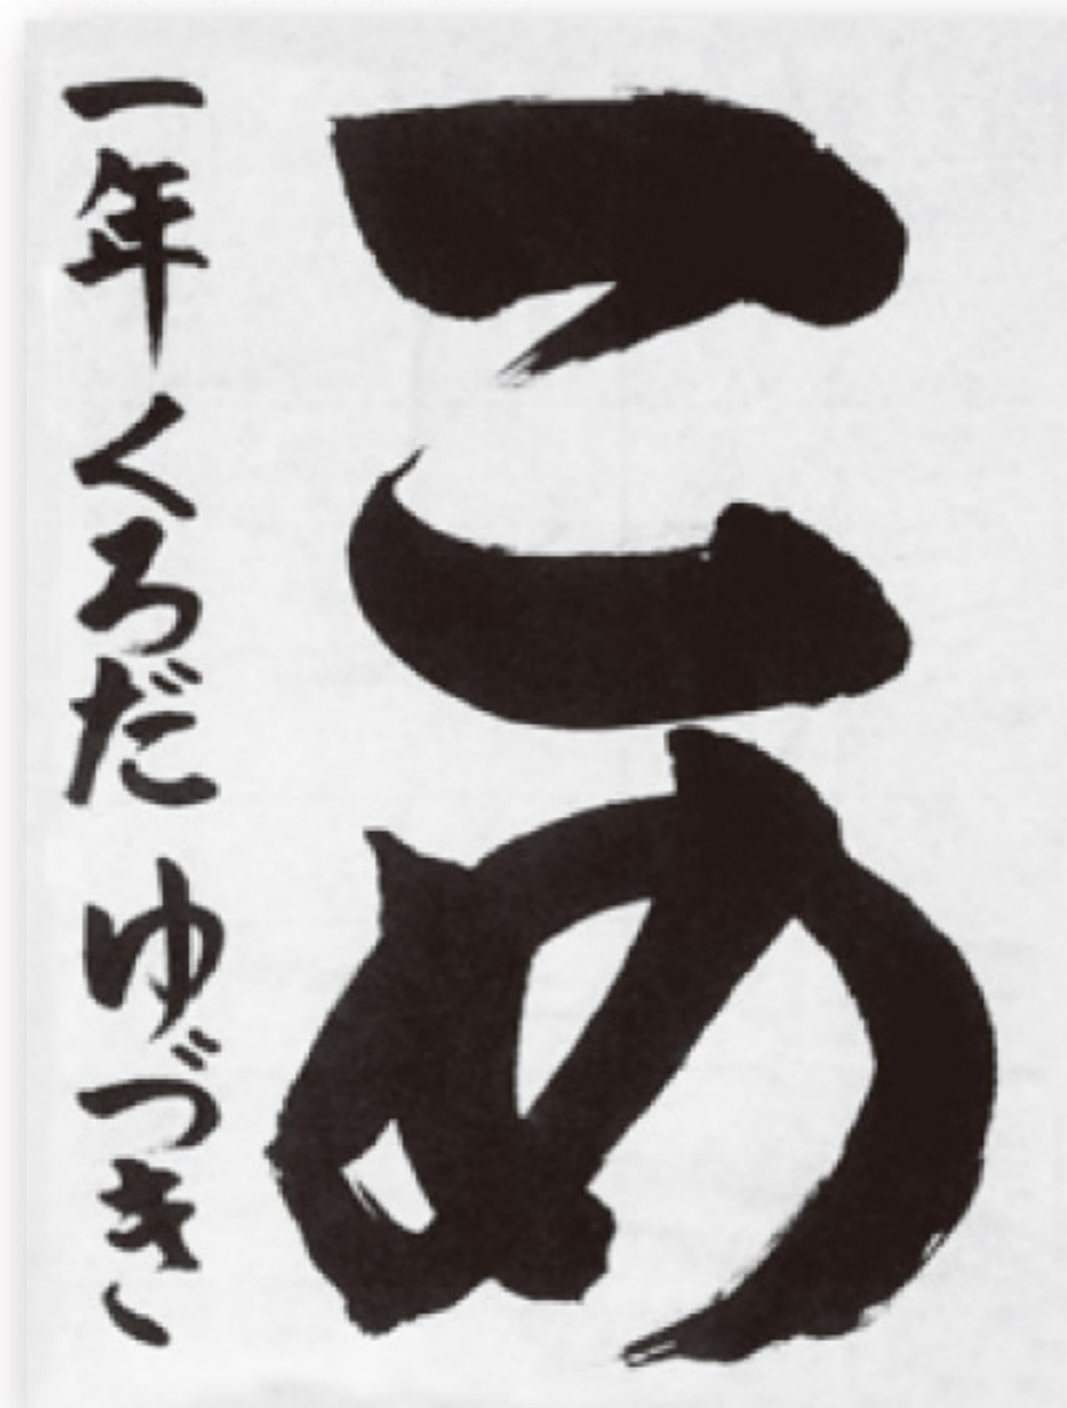 こめ
一年 くろだ ゆづき